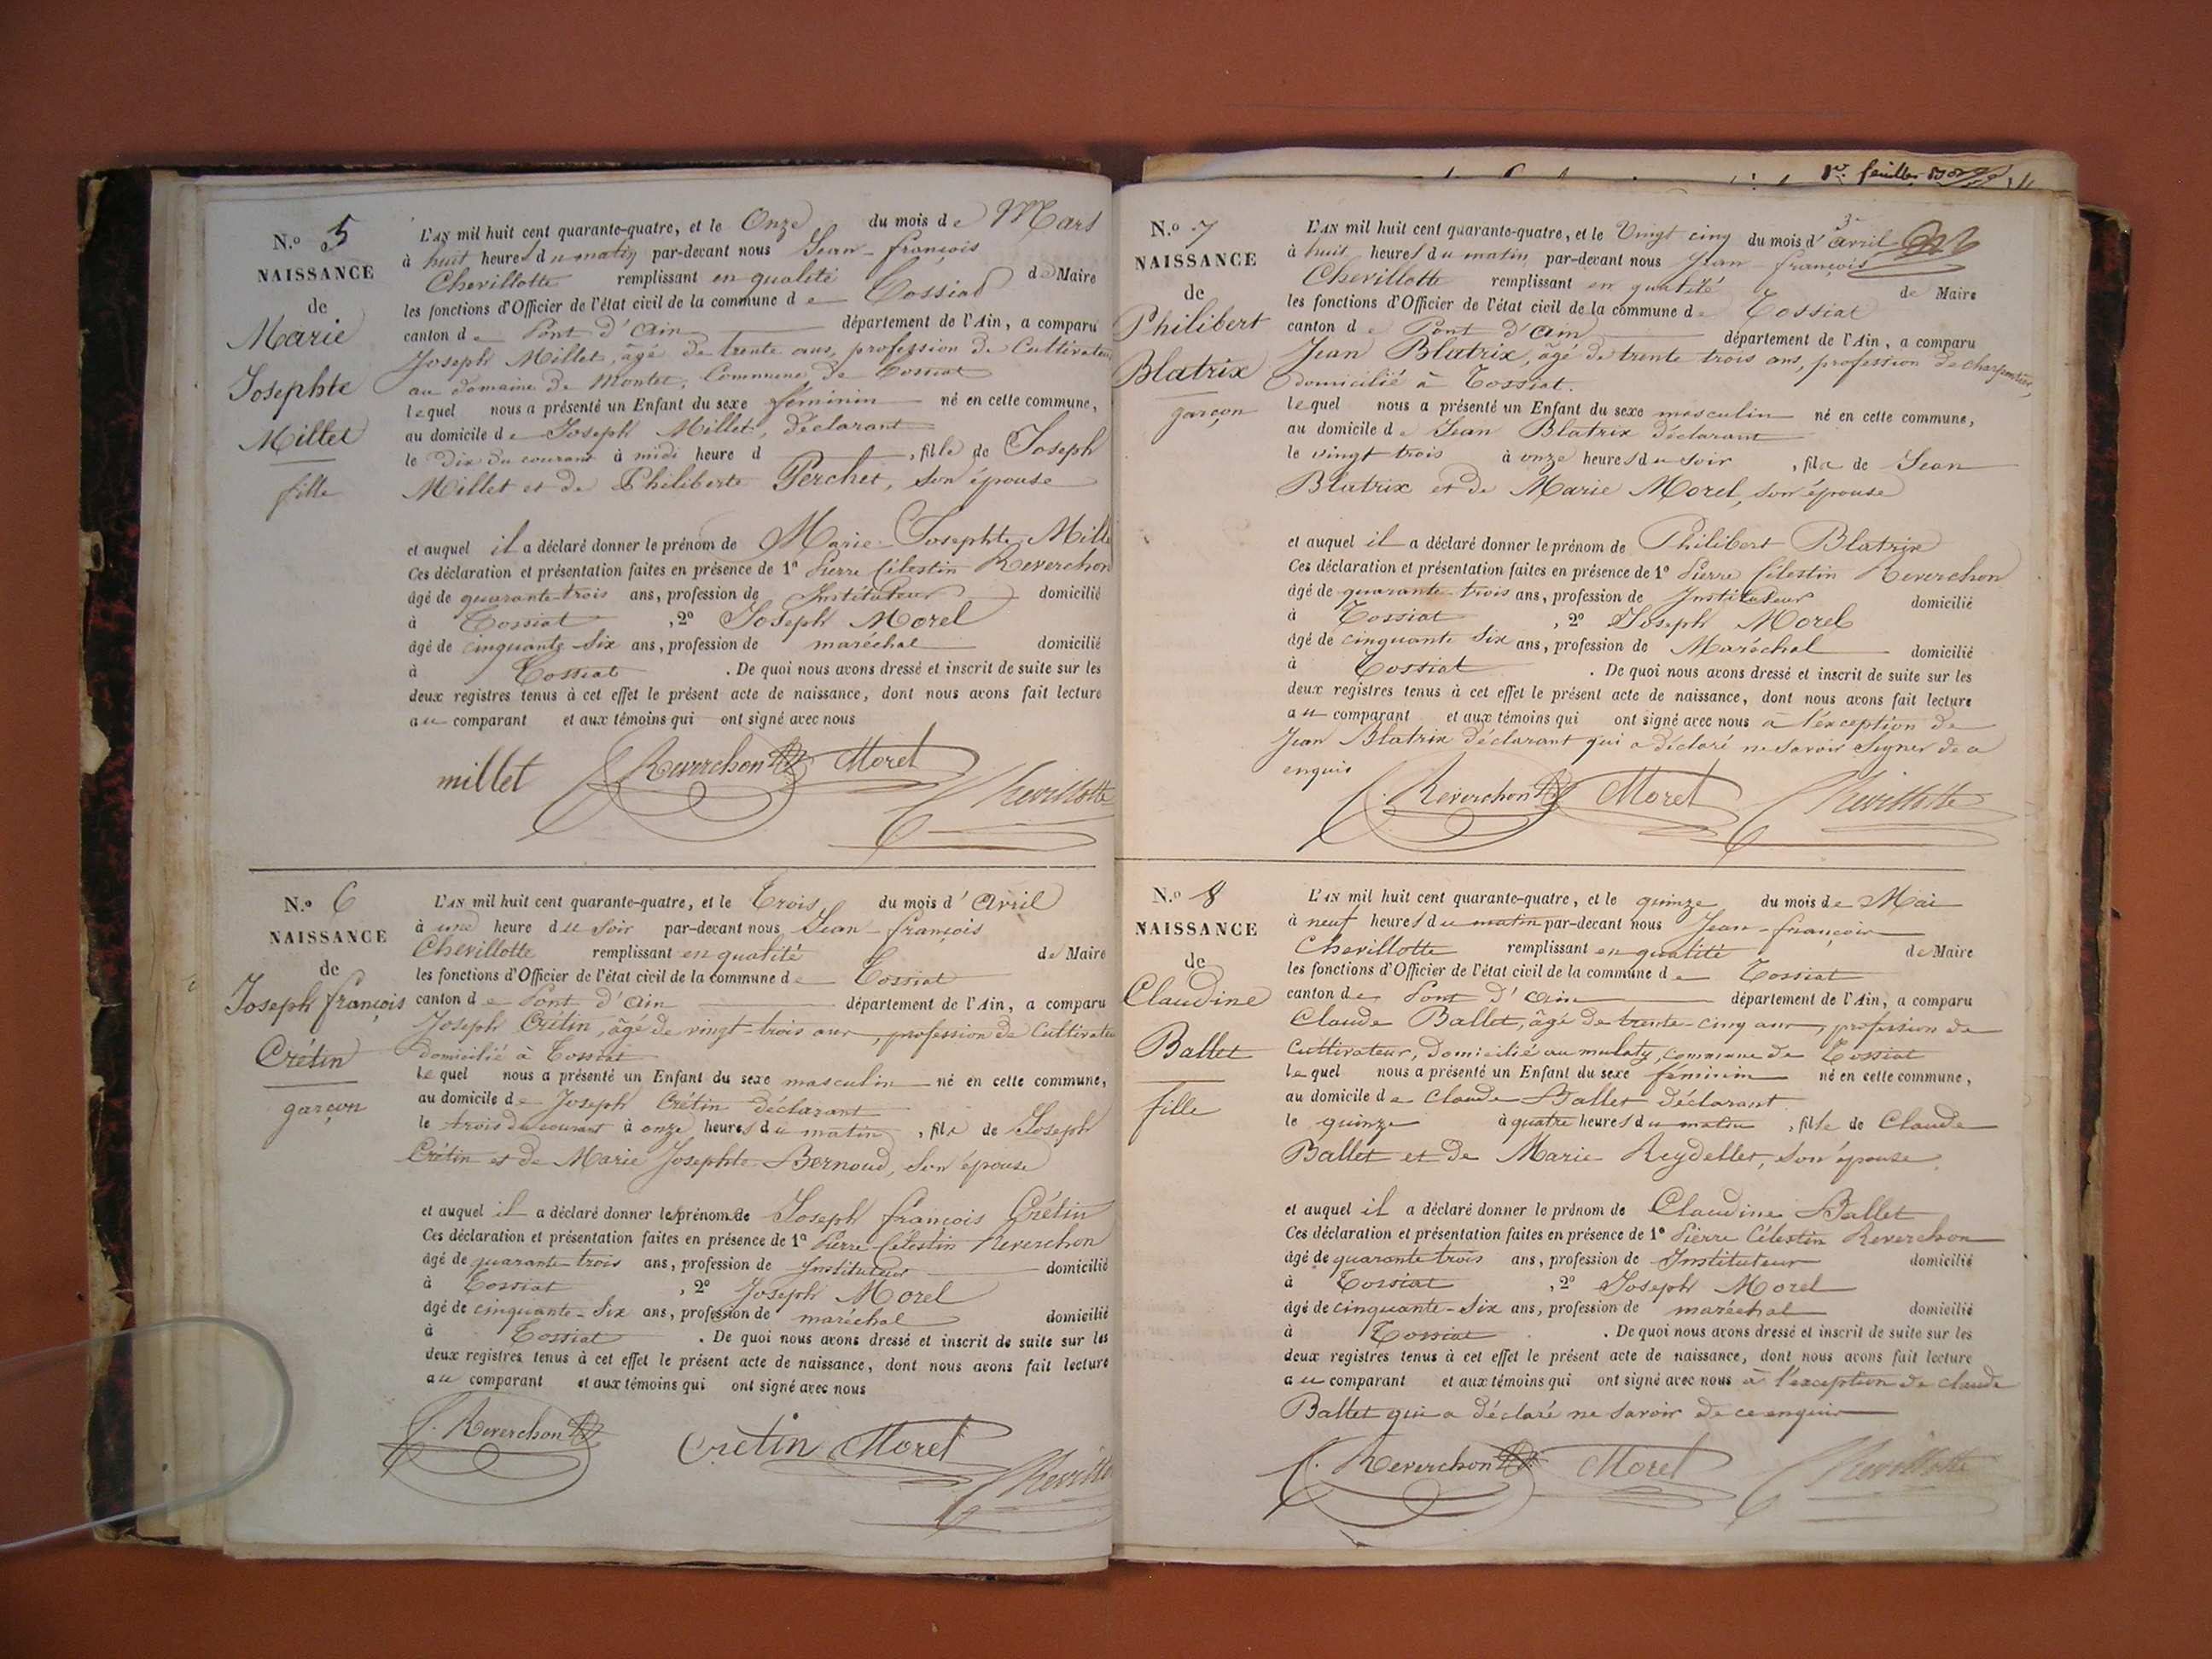 1er feuillet
N.o 5
NAISSANCE
de
Marie
Josephte
Millet
fille
L'AN mil huit cent quarante-quatre, et le Onze du mois de Mars
à huit heures du matin par-devant nous Jean-françois
Chevillotte remplissant en qualité de Maire
les fonctions d'Officier de l'état civil de la commune de Tossiat
canton de Pont d'ain département de l'Ain, a comparu
Joseph Millet, âgé de trente ans, profession de Cultivateur
au domaine de Montet, Commune de Tossiat
lequel nous a présenté un Enfant du sexe féminin né en cette commune,
au domicile de Joseph Millet, déclarant
le Dix du courant à midi heure d , fille de Joseph
Millet et de Philiberte Perchet, son épouse
et auquel il a déclaré donner le prénom de Marie Josephte Mille
Ces déclaration et présentation faites en présence de 1o Pierre Célestin Reverchon
âgé de quarante-trois ans, profession de Instituteur domicilié
à Tossiat , 2o Joseph Morel
âgé de cinquante-six ans, profession de maréchal domicilié
à Tossiat . De quoi nous avons dressé et inscrit de suite sur les
deux registres tenus à cet effet le présent acte de naissance, dont nous avons fait lecture
au comparant et aux témoins qui ont signé avec nous
millet Reverchon Morel
Chevillotte
N.o 6
NAISSANCE
de
Joseph françois
Crétin
garçon
L'AN mil huit cent quarante-quatre, et le Trois du mois d'avril
à une heure du soir par-devant nous Jean-françois
Chevillotte remplissant en qualité de Maire
les fonctions d'Officier de l'état civil de la commune de Tossiat
canton de Pont d'ain département de l'Ain, a comparu
Joseph Crétin, âgé de vingt-trois ans, profession de Cultivate
domicilié à Tossiat
Lequel nous a présenté un Enfant du sexe masculin né en cette commune,
au domicile de Joseph Crétin déclarant
le trois du courant à onze heures du matin , fils de Joseph
Crétin et de Marie Josephte Bernoud, son épouse
et auquel il a déclaré donner le prénom de Joseph françois Crétin
Ces déclaration et présentation faites en présence de 1o Pierre Célestin Reverchon
âgé de quarante trois ans, profession de Instituteur domicilié
à Tossiat , 2o Joseph Morel
âgé de cinquante-six ans, profession de maréchal domicilié
à Tossiat . De quoi nous avons dressé et inscrit de suite sur les
deux registres tenus à cet effet le présent acte de naissance, dont nous avons fait lecture
au comparant et aux témoins qui ont signé avec nous
C. Reverchon Crétin Morel
Chevillo
N.o 7
NAISSANCE
de
Philibert
Blatrix
garçon
L'AN mil huit cent quarante-quatre, et le Vingt cinq du mois d'avril
à huit heures du matin par-devant nous Jean-françois
Chevillotte remplissant en qualité de Maire
les fonctions d'Officier de l'état civil de la commune de Tossiat
canton de Pont d'ain département de l'Ain, a comparu
Jean Blatrix, âgé de trente trois ans, profession de charpentier,
domicilié à Tossiat.
lequel nous a présenté un Enfant du sexe masculin né en cette commune,
au domicile de Jean Blatrix déclarant
le vingt trois à onze heures du soir , fils de Jean
Blatrix et de Marie Morel, son épouse
et auquel il a déclaré donner le prénom de Philibert Blatrix
Ces déclaration et présentation faites en présence de 1o Pierre Célestin Reverchon
âgé de quarante trois ans, profession de Instituteur domicilié
à Tossiat , 2o Joseph Morel
âgé de cinquante six ans, profession de Maréchal domicilié
à Tossiat . De quoi nous avons dressé et inscrit de suite sur les
deux registres tenus à cet effet le présent acte de naissance, dont nous avons fait lecture
au comparant et aux témoins qui ont signé avec nous à l'exception de
Jean Blatrix déclarant qui a déclaré ne savoir signer de a
enquis
C. Reverchon Morel Chevillotte
N.o 8
NAISSANCE
de
Claudine
Ballet
fille
L'AN mil huit cent quarante-quatre, et le quinze du mois de Mai
à neuf heures du matin par-devant nous Jean-françois
Chevillotte remplissant en qualité de Maire
les fonctions d'Officier de l'état civil de la commune de Tossiat
canton de Pont d'ain département de l'Ain, a comparu
Claude Ballet, âgé de trente-cinq ans, profession de
Cultivateur, domicilié au mulaty, commune de Tossiat
Lequel nous a présenté un Enfant du sexe féminin né en cette commune,
au domicile de Claude Ballet déclarant
le quinze à quatre heures du matin , fille de Claude
Ballet et de Marie Reydellet, son épouse
et auquel il a déclaré donner le prénom de Claudine Ballet
Ces déclaration et présentation faites en présence de 1o Pierre Célestin Reverchon
âgé de quarante trois ans, profession de Instituteur domicilié
à Tossiat , 2o Joseph Morel
âgé de cinquante-six ans, profession de maréchal domicilié
à Tossiat . De quoi nous avons dressé et inscrit de suite sur les
deux registres tenus à cet effet le présent acte de naissance, dont nous avons fait lecture
au comparant et aux témoins qui ont signé avec nous à l'exception de claude
Ballet qui a déclaré ne savoir de ce enquis
C. Reverchon Morel Chevillotte